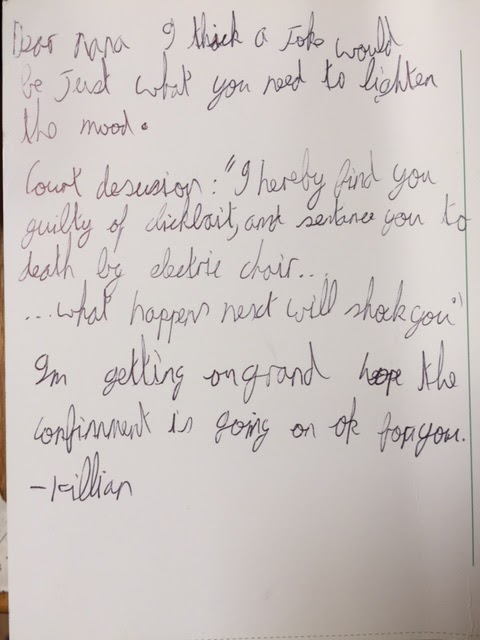 Dear nana I think a Joke would
be Just what you need to lighten
the mood.
Court desussion: "I hereby find you
guilty of clickbait, and sentance you to
death by electric chair...
...what happens next will shock you"
Im getting on grand hope the
confinment is going on ok for you.
-Killian